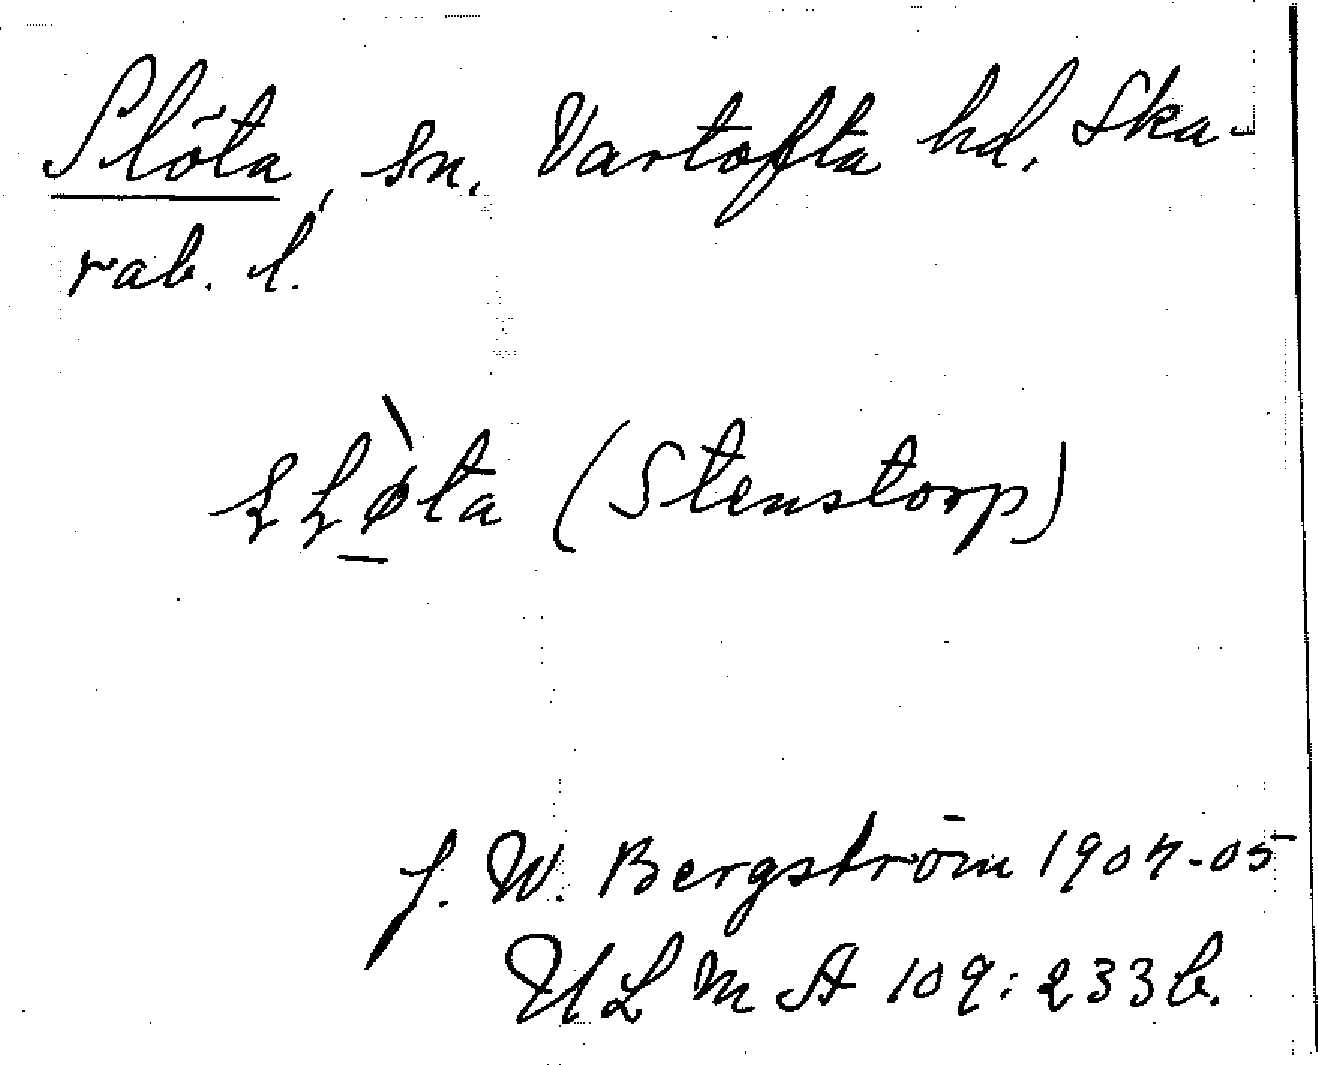 Slöta, sn. Vartofta hd. Ska-
rab. l.
(Stenstorp)
J. W. Bergström 1904-05
ULMA 109:233b.